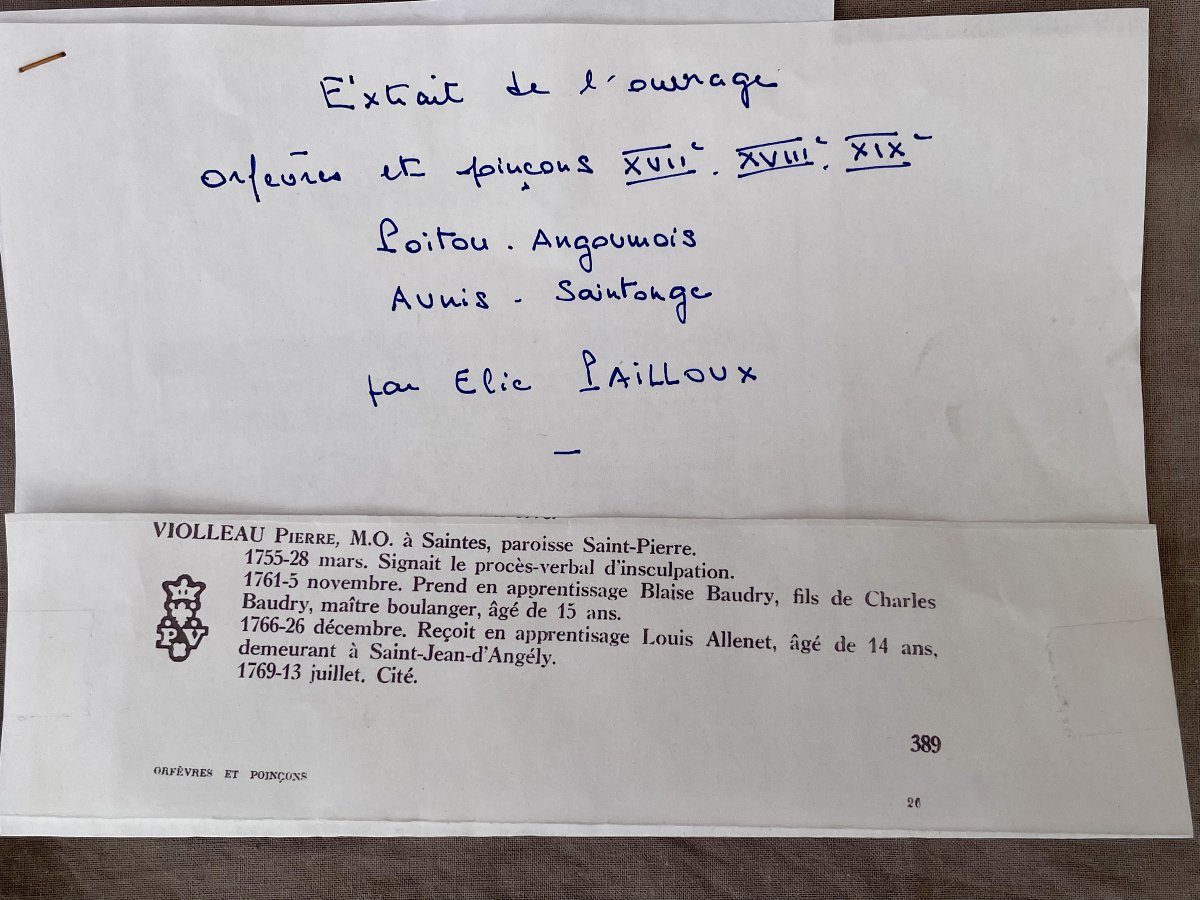 Extrait de l'ouvrage
Orfèvres et poinçons XVIIe. XVIIIe. XIXe
Poitou. Angoumois
Aunis - Saintonge
par Elie PAILLOUX
VIOLLEAU PIERRE, M.O. à Saintes, paroisse Saint-Pierre.
1755-28 mars. Signait le procès-verbal d'insculpation.
1761-5 novembre. Prend en apprentissage Blaise Baudry, fils de Charles
Baudry, maître boulanger, âgé de 15 ans.
1766-26 décembre. Reçoit en apprentisage Louis Allenet, âgé de 14 ans,
demeurant à Saint-Jean-d'Angély.
1769-13 juillet. Cité.
P V
389
ORFÈVRES ET POINÇONS
26